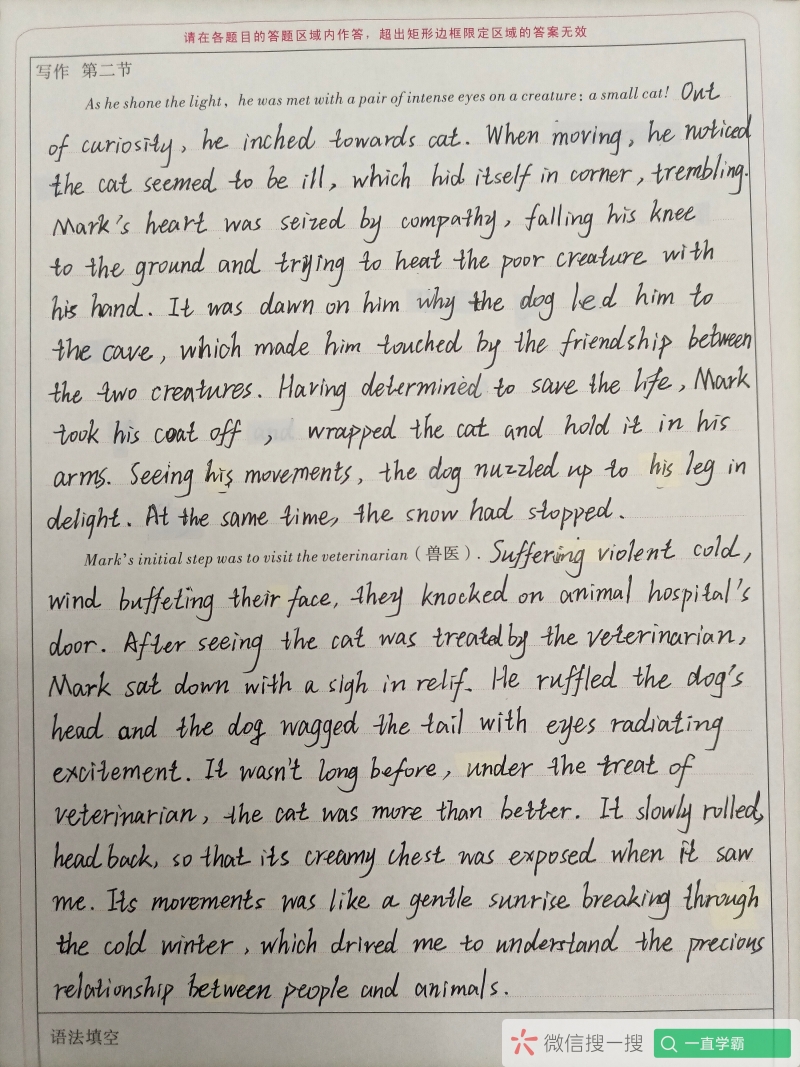 请在各题目的答题区域内作答，超出矩形边框限定区域的答案无效
写作 第二节
As he shone the light, he was met with a pair of intense eyes on a creature: a small cat! Out
of curiosity, he inched towards cat. When moving, he noticed
the cat seemed to be ill, which hid itself in corner, trembling.
Mark's heart was seized by compathy, falling his knee
to the ground and trying to heat the poor creature with
his hand. It was dawn on him why the dog led him to
the cave, which made him touched by the friendship between
the two creatures. Having determined to save the life, Mark
took his coat off , wrapped the cat and hold it in his
arms. Seeing his movements, the dog nuzzled up to his leg in
delight. At the same time, the snow had stopped.
Mark's initial step was to visit the veterinarian (兽医). Suffering violent cold,
wind buffeting their face, they knocked on animal hospital's
door. After seeing the cat was treated by the veterinarian,
Mark sat down with a sigh in relif. He ruffled the dog's
head and the dog wagged the tail with eyes radiating
excitement. It wasn't long before, under the treat of
veterinarian, the cat was more than better. It slowly rolled,
head back, so that its creamy chest was exposed when it saw
me. Its movements was like a gentle sunrise breaking through
the cold winter, which drived me to understand the precious
relationship between people and animals.
语法填空
微信搜一搜 一直学霸